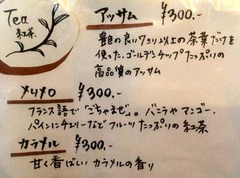 Tea
紅茶
アッサム ¥300.-
最も良い7ミリ以上の茶葉だけを
使った、ゴールデンチップたっぷりの
高品質のアッサム
メリメロ ¥300.-
フランス語で「ごちゃまぜ」。バニラやマンゴー、
パインにチェリーなどフルーツたっぷりの紅茶
カラメル ¥300.-
甘く香ばしいカラメルの香り